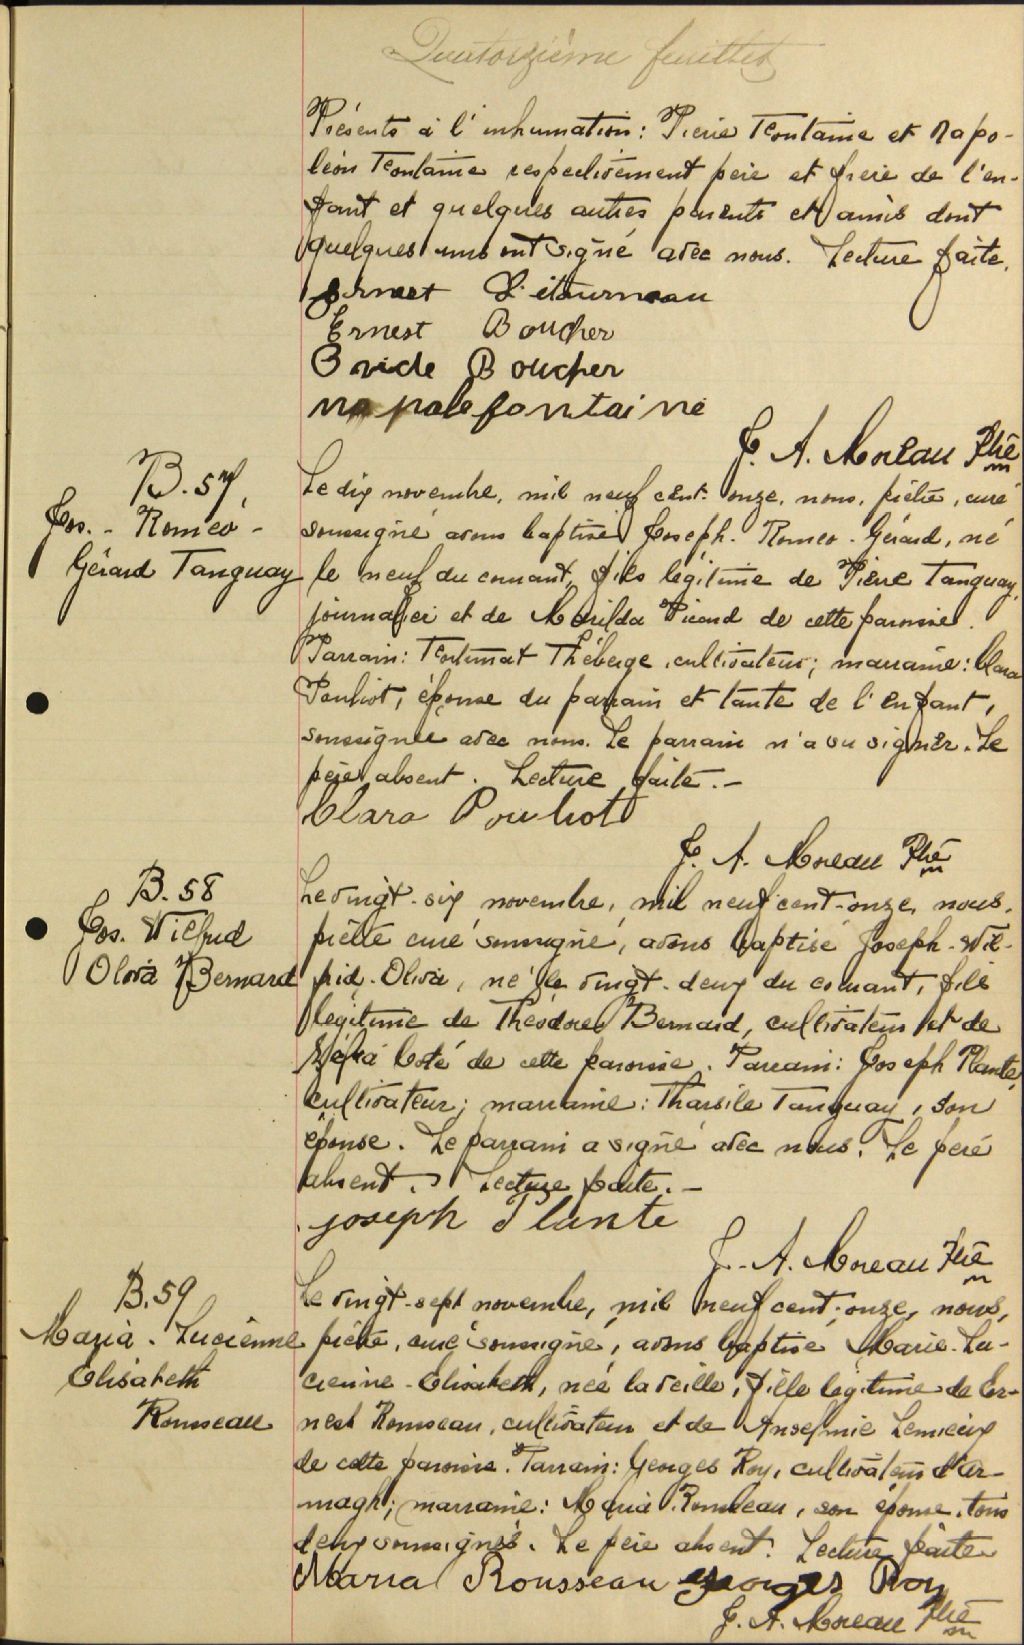 Quatorzième feuillet
Présents à l'inhumation: Pierre Fontaine et Napo-
léon Fontaine respectivement père et frère de l'en-
fant et quelques autres parents et amis dont
quelques uns ont signé avec nous. Lecture faite.
Ernest Létourneau
Ernest Boucher
Ovide Boucher
fontaine
J. A. Moreau Ptre
B. 57.
Jos. - Roméo -
Gérard Tanguay
Le dix novembre, mil neuf cent onze, nous, prêtre, curé
soussigné avons baptisé Joseph - Roméo - Gérard, né
le neuf du courant, fils légitime de Pierre Tanguay,
journalier et de Marilda Picard de cette paroisse.
Parrain: Fortunat Théberge, cultivateur; marraine: Clara
Pouliot, épouse du parrain et tante de l'enfant,
soussignée avec nous. Le parrain n'a su signer. Le
père absent. Lecture faite. -
Clara Pouliot
J. A. Moreau Ptre
B. 58
Jos. Wilfrid
Oliva Bernard
Le vingt-six novembre, mil neuf cent-onze, nous,
prêtre curé soussigné, avons baptisé Joseph - Wil-
frid - Oliva, né le vingt-deux du courant, fils
légitime de Théodore Bernard, cultivateur et de
Coté de cette paroisse. Parrain: Joseph Plante,
cultivateur; marraine: Tharsile Tanguay, son
épouse. Le parrain a signé avec nous. Le père
absent. Lecture faite. -
joseph Plante
J. A. Moreau Ptre
B. 59
Maria - Lucienne
Elisabeth
Rousseau
Le vingt-sept novembre, mil neuf cent-onze, nous,
prêtre, curé soussigné, avons baptisé Marie - Lu-
cienne - Elisabeth, née la veille, fille légitime de Er-
nest Rousseau, cultivateur et de Anselmie Lemieux
de cette paroisse. Parrain: Georges Roy, cultivateur d'Ar-
magh; marraine: Maria Rousseau, son épouse, tous
deux soussignés. Le père absent. Lecture faite
Maria Rousseau Georges Roy
J. A. Moreau Ptre